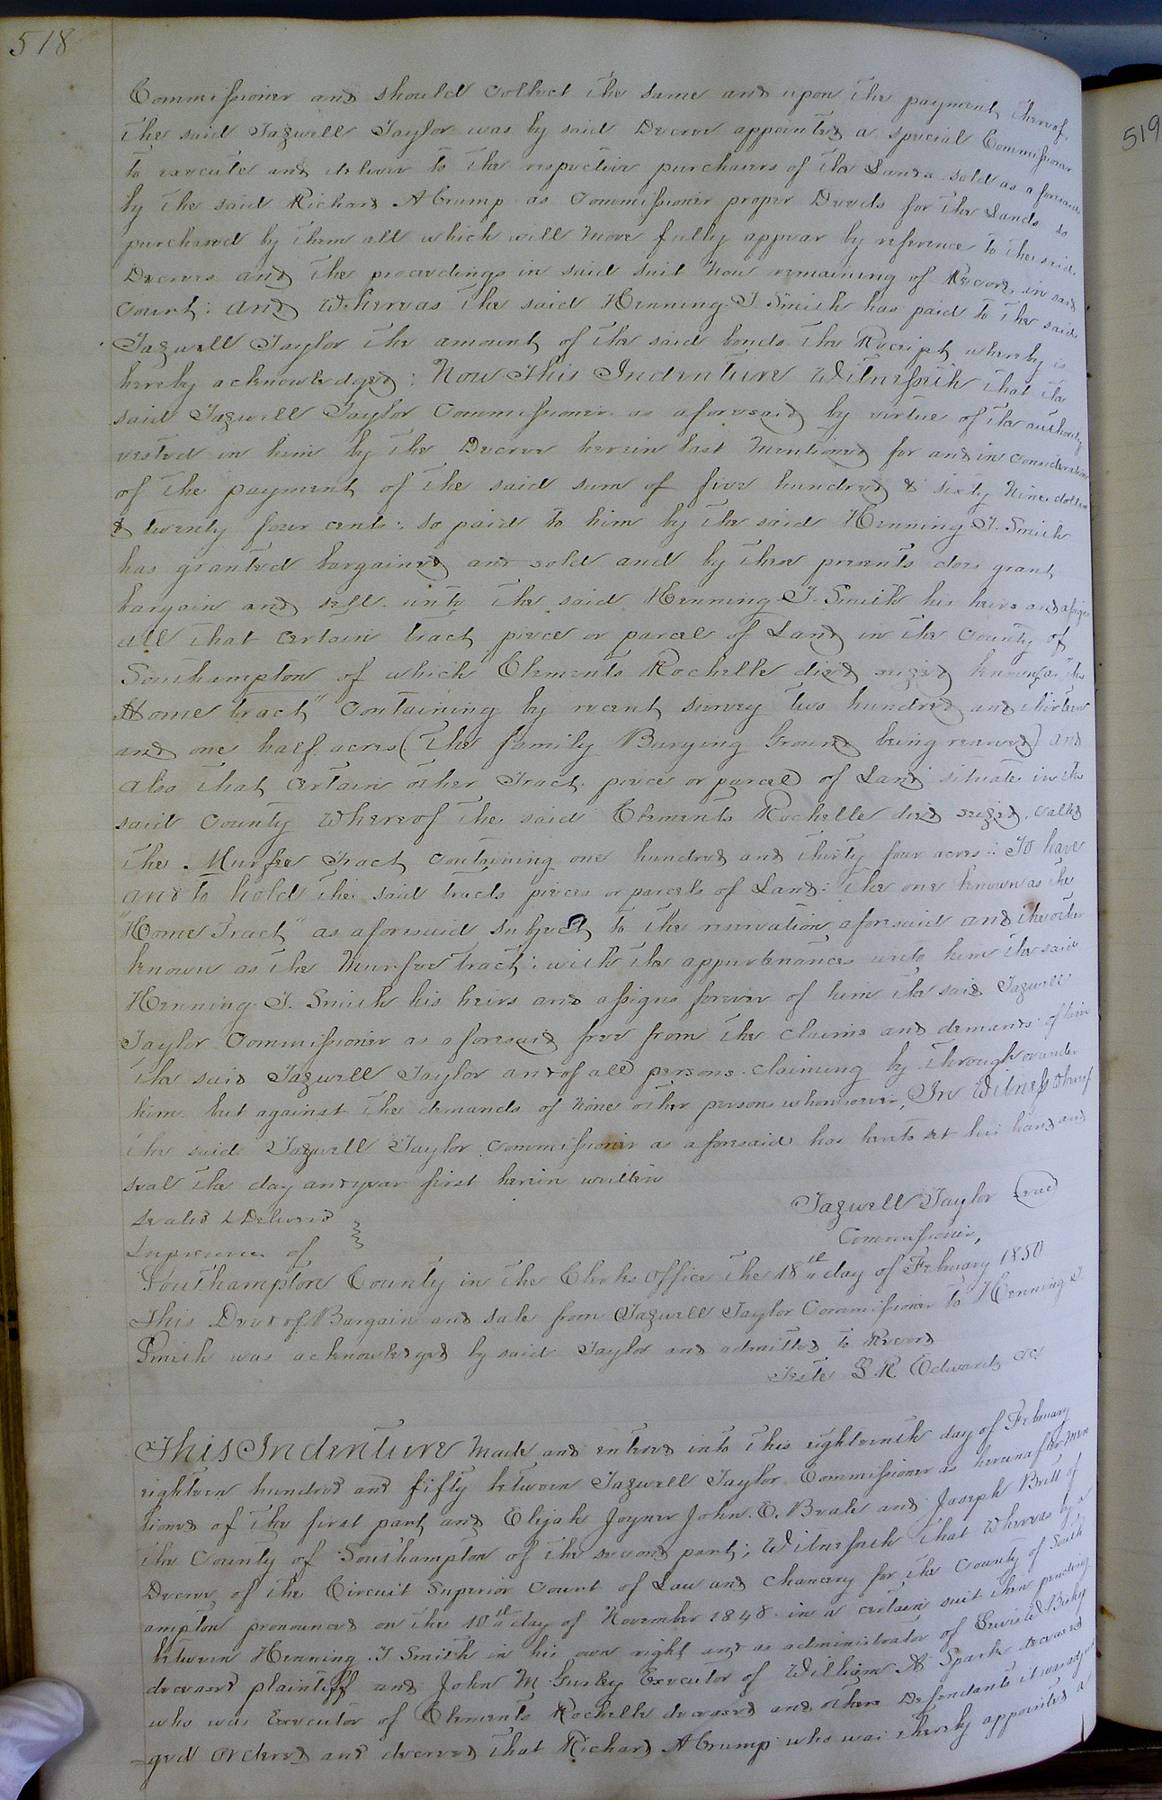 518
519
Commissioner and should collect the same and upon the payment thereof
the said Tazwell Taylor was by said Decree appointed a special Commissioner
to execute and deliver to the respective purchasers of the Lands sold as aforesaid
by the said Richard A Crump as Commissioner proper Deeds for the Lands so
purchased by them all which will more fully appear by reference to the said
Decrees and the proceedings in said suit now remaining of Record in said
court: and Whereas the said Henning T Smith has paid to the said
Tazwell Taylor the amount of the said bonds the Receipt whereby is
hereby acknowledged: Now This Indenture Witnesseth that the
said Tazwell Taylor Commissioner as aforesaid by virtue of the authority
vested in him by the Decree herein last mentioned for and in consideration
of the payment of the said sum of five hundred & sixty Nine dollars
& twenty four cents: so paid to him by the said Henning T. Smith
has granted bargained and sold and by these presents does grant
bargain and sell unto the said Henning T. Smith his heirs and assigns
all that certain tract piece or parcel of Land in the County of
Southampton of which Clements Rochelle died seized known as "the
Home tract" containing by recent survey two hundred and thirteen
and one half acres (the family Burying Ground being reserved) and
also that certain other Tract piece or parcel of Land situate in the
said County Whereof the said Clements Rochelle died seized, called
the Murfee Tract containing one hundred and thirty four acres: To have
and to hold the said tracts pieces or parcels of Land: the one known as the
"Home Tract" as aforesaid subject to the reservation aforesaid and the other
known as the Murfee tract: with the appurtenances unto him the said
Henning T. Smith his heirs and assigns forever of him the said Tazwell
Taylor Commissioner as aforesaid free from the claims and demands of him
the said Tazwell Taylor and of all persons claiming by through or under
him but against the demands of none other persons whomsoever, In Witness whereof
the said Tazwell Taylor Commissioner as aforesaid has hereto set his hand and
seal the day and year first herein written
Tazwell Taylor Seal
Sealed & Delivered
Commissioner,
In presence of
Southampton County in the Clerks office the 18th day of February 1850
This Deed of Bargain and sale from Tazwell Taylor Commissioner to Henning T.
Smith was acknowledged by said Taylor and admitted to Record
Teste L R Edwards CC
This Indenture Made and entered into this eighteenth day of February
eighteen hundred and fifty between Tazwell Taylor Commissioner as hereinafter men
tioned of the first part and Elijah Joyner John E. Beale and Joseph Britt of
the County of Southampton of the second part; Witnesseth that Whereas by a
Decree of the Circuit Superior Court of Law and Chancery for the County of South
ampton pronounced on the 10th day of November 1848 in a certain suit then pending
between Henning T Smith in his own right and as administrator of
deceased plaintiff and John M Gurley Executor of William A Spark deceased
who was Executor of Clements Rochelle deceased and others Defendants it was adjud
ged ordered and decreed that Richard A Crump who was thereby appointed a